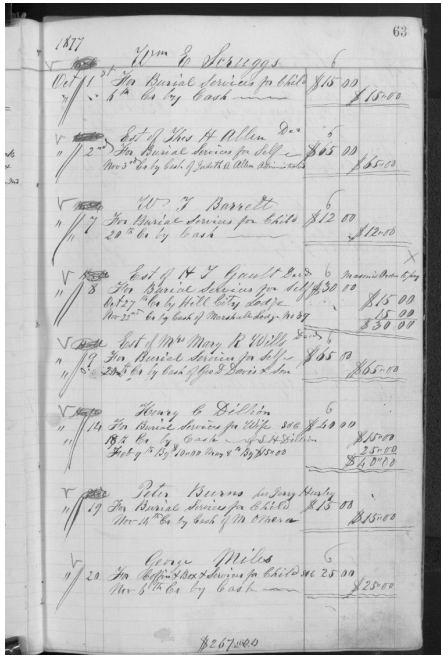 63
1877
Wm E Scruggs 6
Oct 1st For Burial Services for Child $15 00
" " 6th Cr by Cash $15.00
Est of Thos H Allen Decd 6
" 2nd For Burial Services for Self $65 00
Nov 3rd Cr by Cash of Judith A Allen Administratrix $65.00
W T Barrett 6
" 7 For Burial Services for Child $12 00
20th Cr by Cash $12.00
Est of H T Gault Decd 6 Masonic Order to pay X
" 8 For Burial Services for Self $30 00
Oct 27th Cr by Hill City Lodge $15 00
Nov 22nd Cr by Cash of Marshall Lodge No 39 15 00
$30 00
Est of Mrs Mary R Wills Decd 6
" 9 For Burial Services for Self $65 00
20th Cr by Cash of Geo D Davis & Son $65.00
Henry C Dillion 6
" 14 For Burial Services for Wife $40 00
" 18th Cr by Cash $15.00
Feby 9th By $10.00 May 8th By $15.00 25.00
$40.00
Peter Burns 6
" 19 For Burial Services for Child $15 00
Nov 14th Cr by Cash of $15.00
George Miles 6
" 20 For Coffin & Box & Services for Child 25 00
Nov 5th Cr by Cash $25.00
$267.00